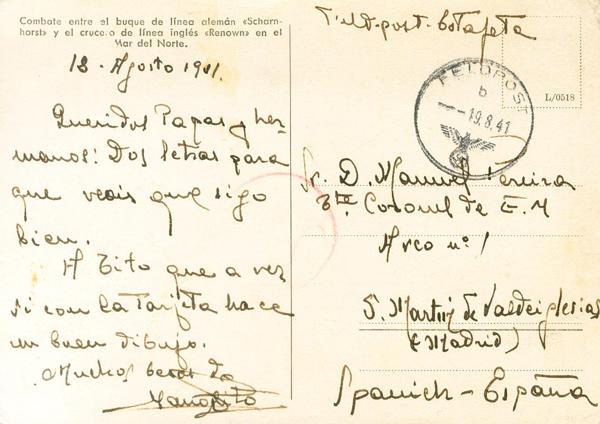 Combate entre el buque de línea alemán «Scharn-
horst» y el crucero de línea inglés «Renown» en el
Mar del Norte.
18 - Agosto 1941.
Queridos Papas y her-
manos: Dos letras para
que veais que sigo
bien.
A Tito que a ver
si con la tarjeta hace
un buen dibujo.
Muchos besos de
Manolito
Feld-post-Estafeta
FELDPOST
b
-19.8.41
L/0518
Sr. D. Manuel Pereira
Tte. Coronel de E. M
Arco nº 1
S. Martin de Valdeiglesias
(Madrid)
Spanich - España